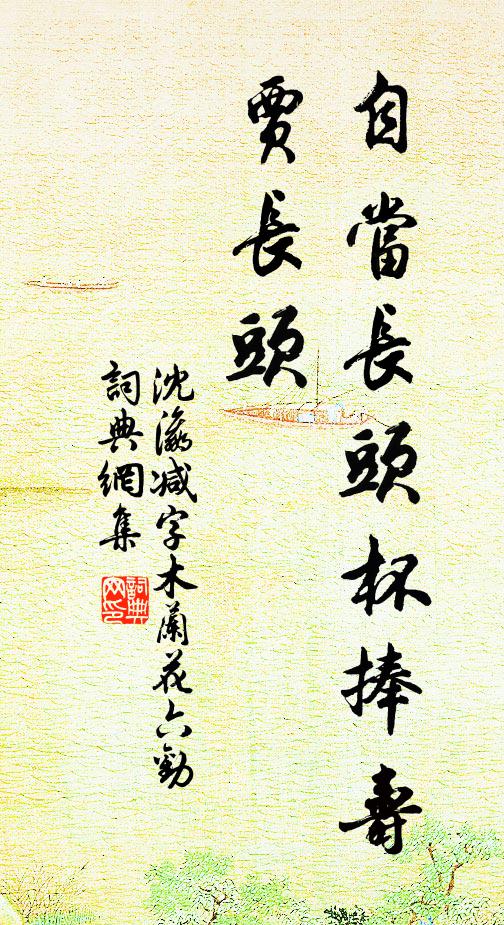 自當長頭杯捧壽
賈長頭
沈瀛减字木蘭花六勸
詞典網集
詞典
网印